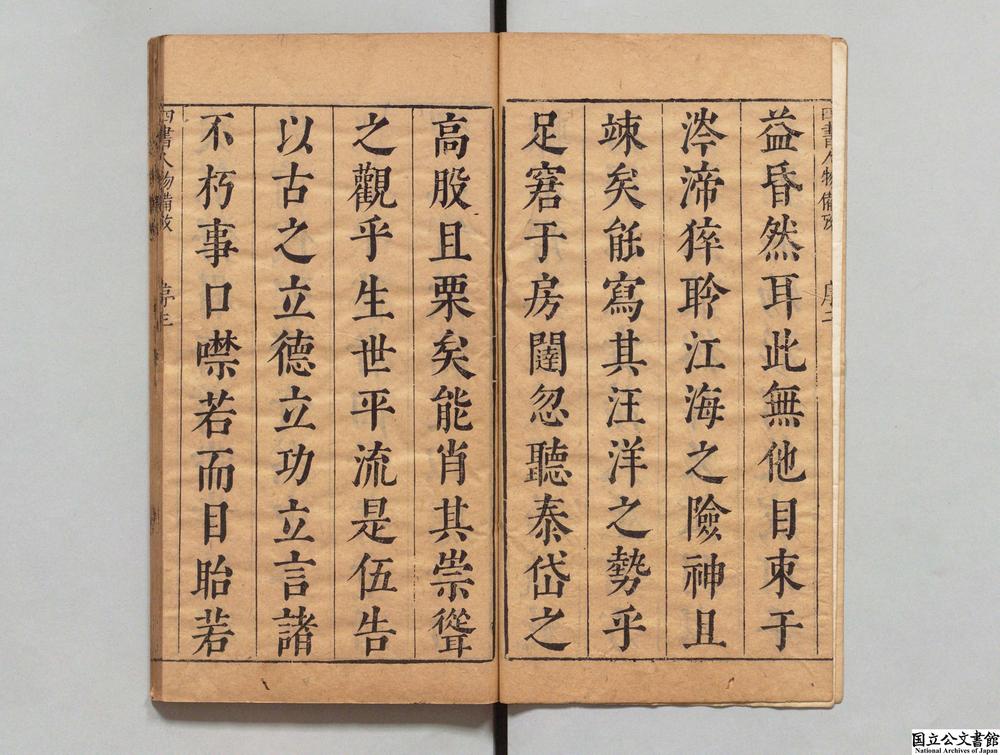 益昏然耳此無他目束于
涔渧猝聆江海之險神且
竦矣能寫其汪洋之勢乎
足窘于房闥忽聽泰岱之
高股且栗矣能肖其崇聳
之觀乎生世平流是伍告
以古之立德立功立言諸
不朽事口噤若而目眙若
四書人物備攷
序三
国立公文書館
National Archives of Japan